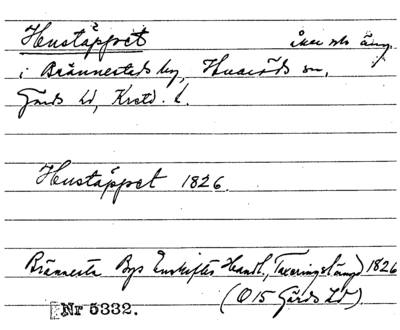 Hustäppet åker och äng.
i Brännestads by, Huaröds sn,
Gärds hd, Krstd. l.
Hustäppet 1826.
Brännesta Bys Enskiftes Handl., Taxeringslängd 1826
(O 15 Gärds hd).
Nr 5332.